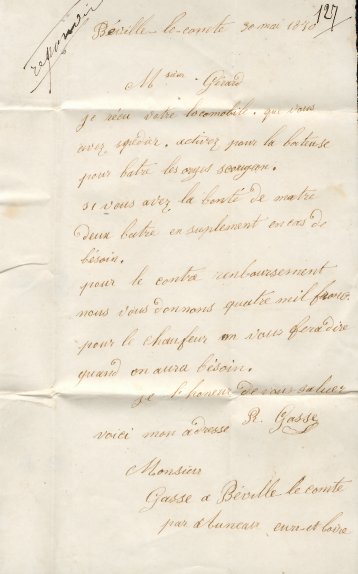 127
repondu
Béville le comte 30 mai 18
Msieur Gérard
je récu votre locomobil. que vous
avez spedier. activez pour la bateuse
pour batre les orgis scourgon.
si vous avez la bonté de matre
deux batre en suplement en cas de
bésoin.
pour le contra renboursement
nous vous donnons quatre mil franc.
pour le chaufeur on vous fera dire
quand on aura bésoin.
je l'honeur de vous saluer
voici mon adresse R. Gasse
Monsieur
Gasse a Béville le comte
par eure et loire